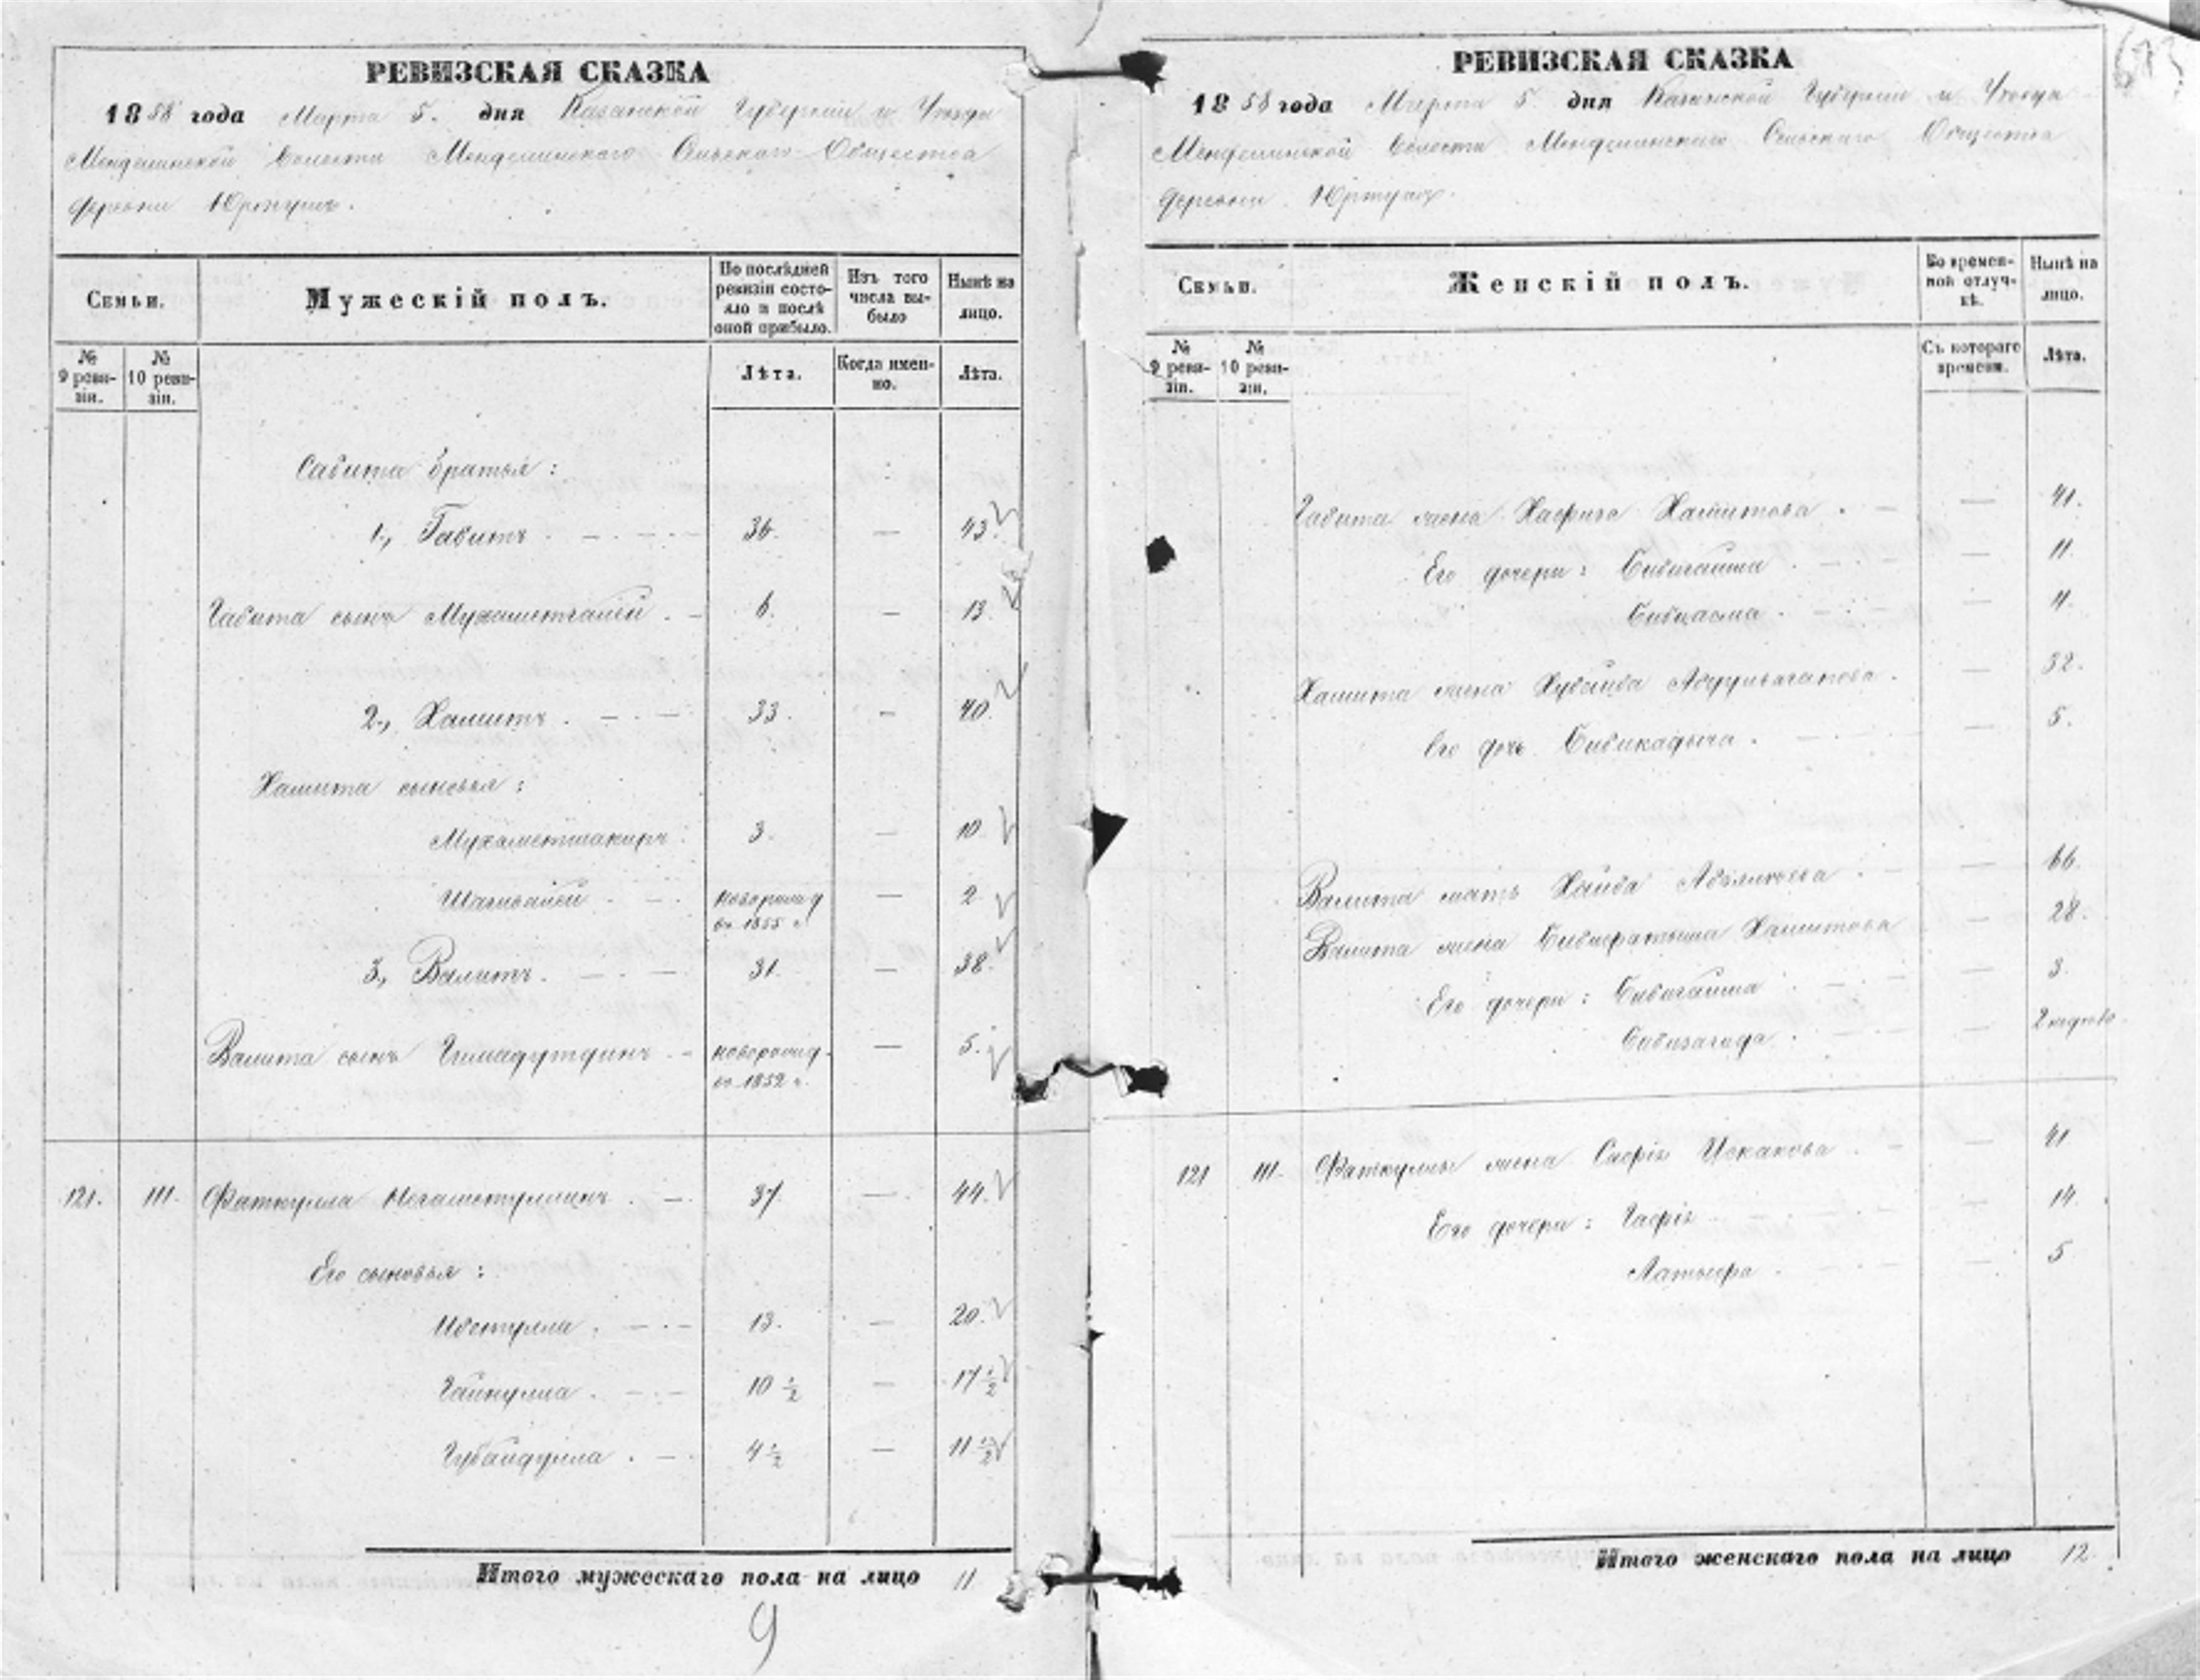 РЕВИЗСКАЯ СКАЗКА
1858 года Марта 5. дня Казанской Губернии и Уезда
Менделинской Волости Менделинскаго Сельскаго Общества
деревни Юртушъ.
Семьи.
Мужескій полъ.
По послѣдней ревизіи состояло и послѣ оной прибыло.
Изъ того числа выбыло
Нынѣ на лицо.
№ 9 ревизіи.
№ 10 ревизіи.
Лѣта.
Когда именно.
Лѣта.
Сабита братья:
1., Габитъ. 36. — 43.
Габита сынъ Мухаметгалей. 6. — 13.
2., Хамитъ. 33. — 40.
Хамита сыновья:
Мухаметшакиръ 3. — 10
Шагивалей новорожд — 2
въ 1855 г.
3., Валитъ. 31. — 38.
Валита сынъ Гимадутдинъ. новорожд. — 5.
въ 1852 г.
121. 111. Фаткулла Негаметуллинъ. 37. — 44.
Его сыновья:
Ибетулла. 13. — 20.
Гайнулла. 10 1/2 — 17 1/2
Губайдулла. 4 1/2 — 11 1/2
Итого мужескаго пола на лицо 11
9
673
РЕВИЗСКАЯ СКАЗКА
1858 года Марта 5. дня Казанской Губернии и Уезда
Менделинской Волости Менделинскаго Сельскаго Общества
деревни Юртушъ.
Семьи.
Женскій полъ.
Во временной отлучкѣ.
Нынѣ на лицо.
№ 9 ревизіи.
№ 10 ревизіи.
Съ котораго времени.
Лѣта.
Габита жена Хамитова. — 41.
Его дочери: Бибигайша. — 11.
— 4.
Хамита жена Хубайба — 32.
Его дочь Бибикадыча. — 5.
Валита мать Хаиба — 66.
Валита жена Бибифатыма Хамитова — 28.
Его дочери: Бибигайша — 3.
Бибизагида. —
121 111. Фаткуллы жена Сафія Искакова. — 41
Его дочери: Гафія — 14.
Латыфа. — 5
Итого женскаго пола на лицо 12.